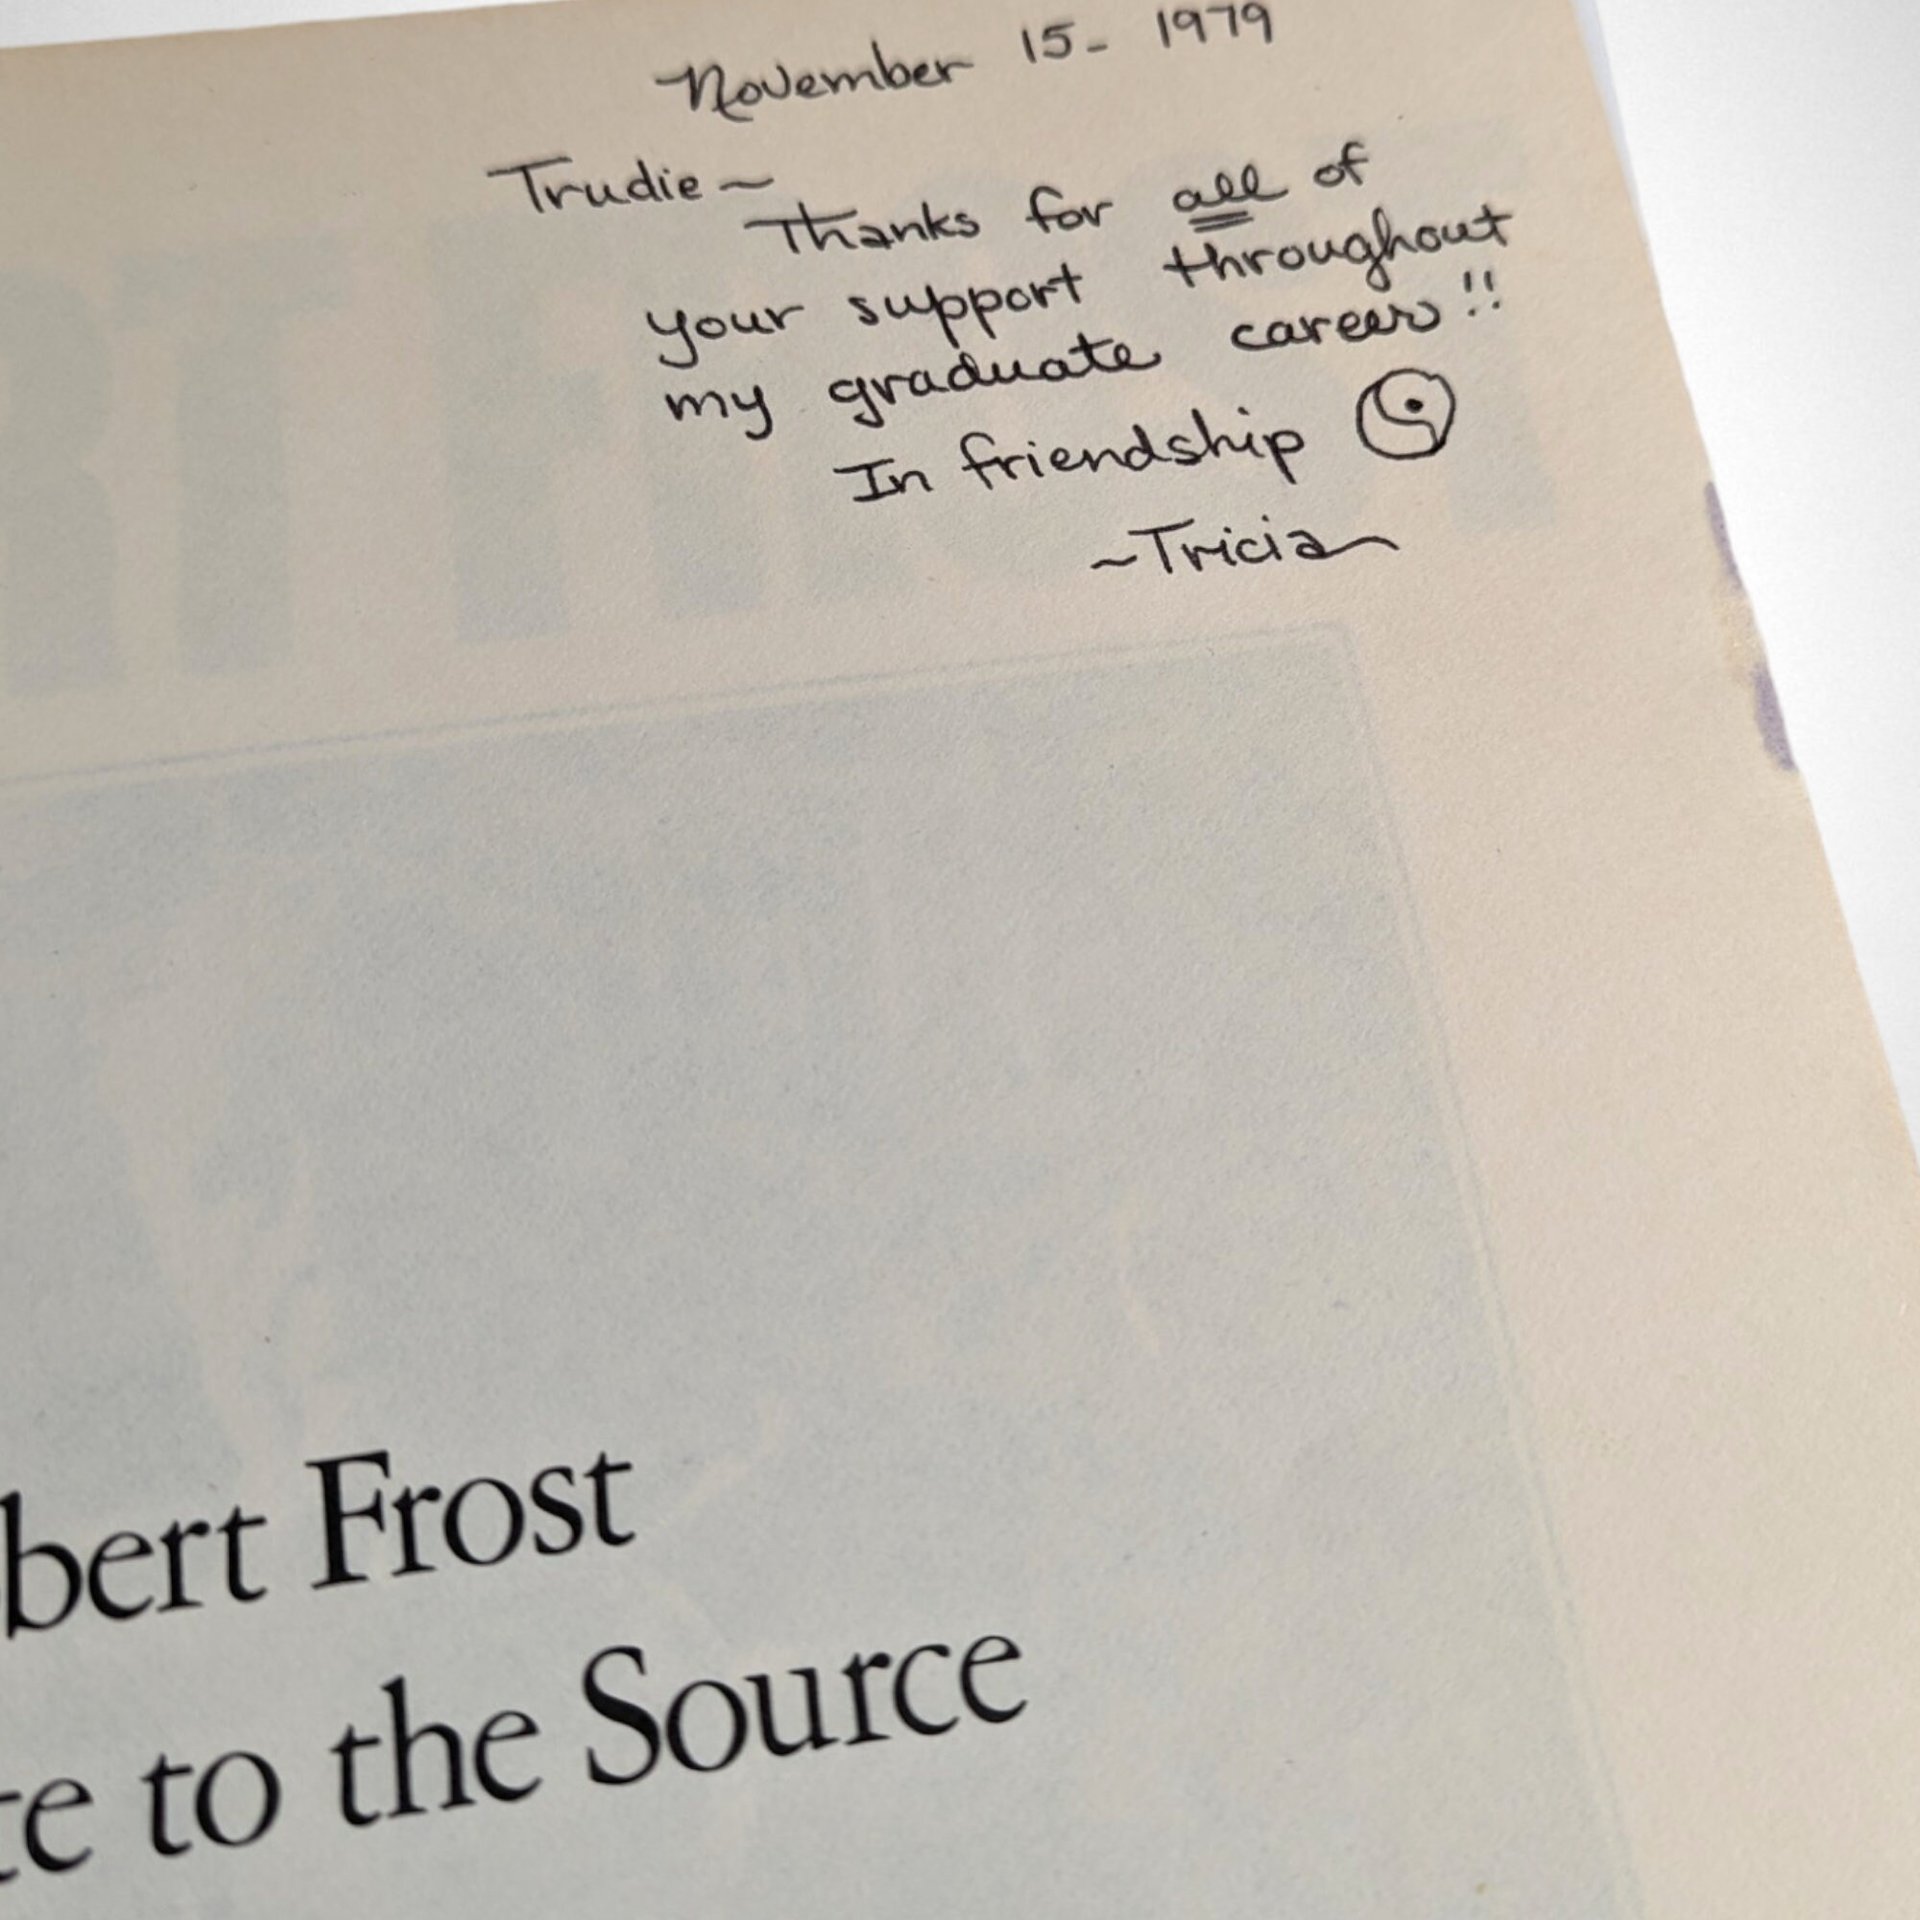 November 15- 1979
Trudie~
Thanks for all of
your support throughout
my graduate career!!
In friendship
~Tricia
bert Frost
te to the Source